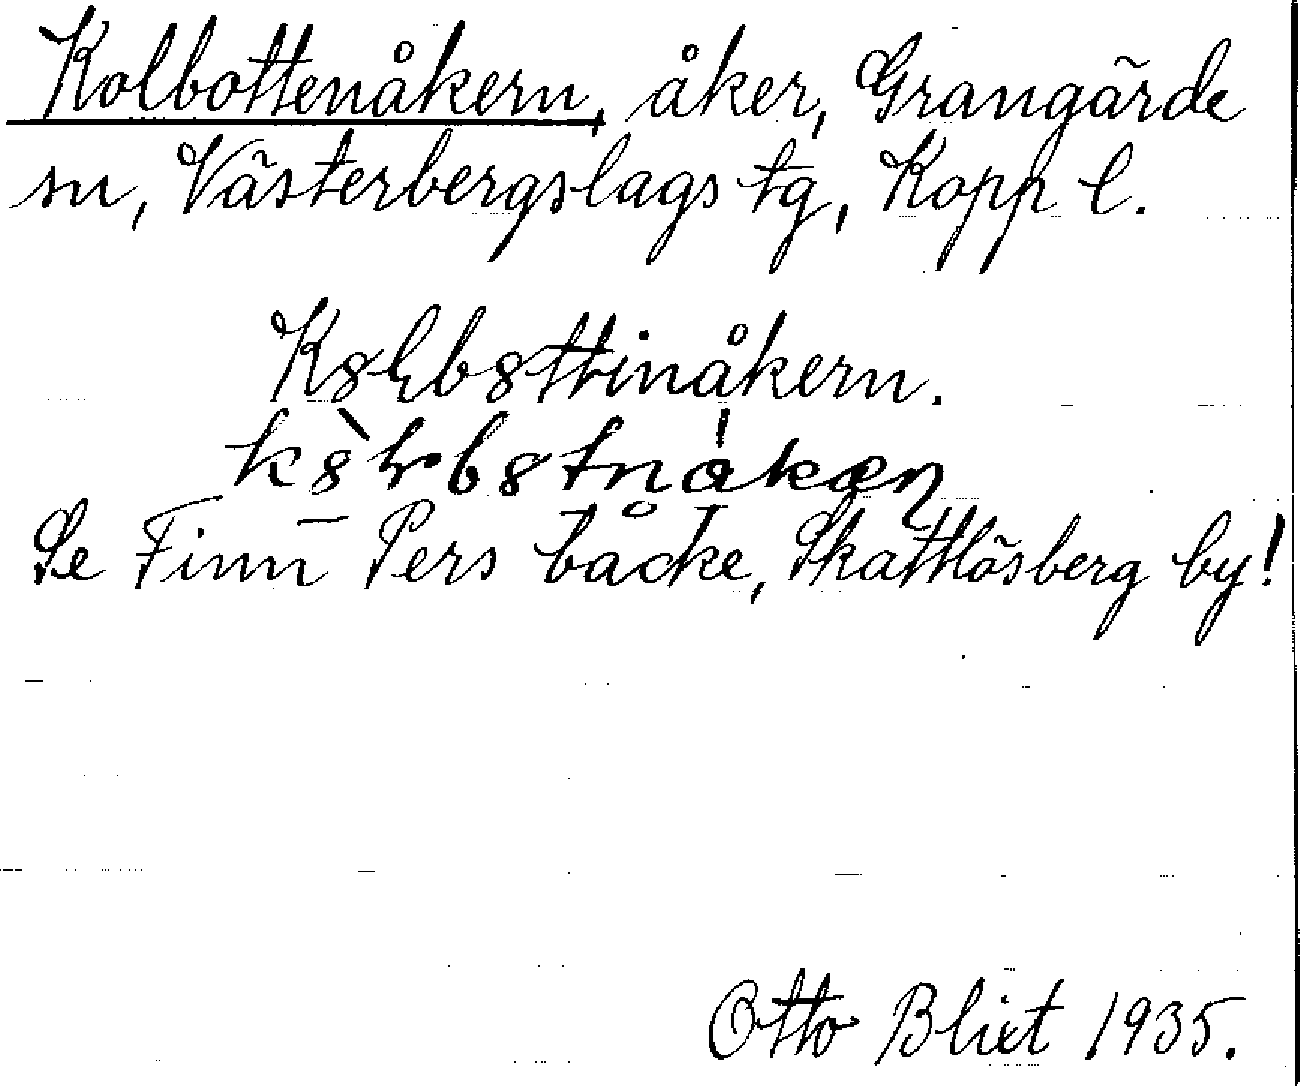 Kolbottenåkern, åker, Grangärde
sn, Västerbergslags tg, Kopp l.
Se Finn Pers backe, Skattlösberg by!
Otto Blixt 1935.